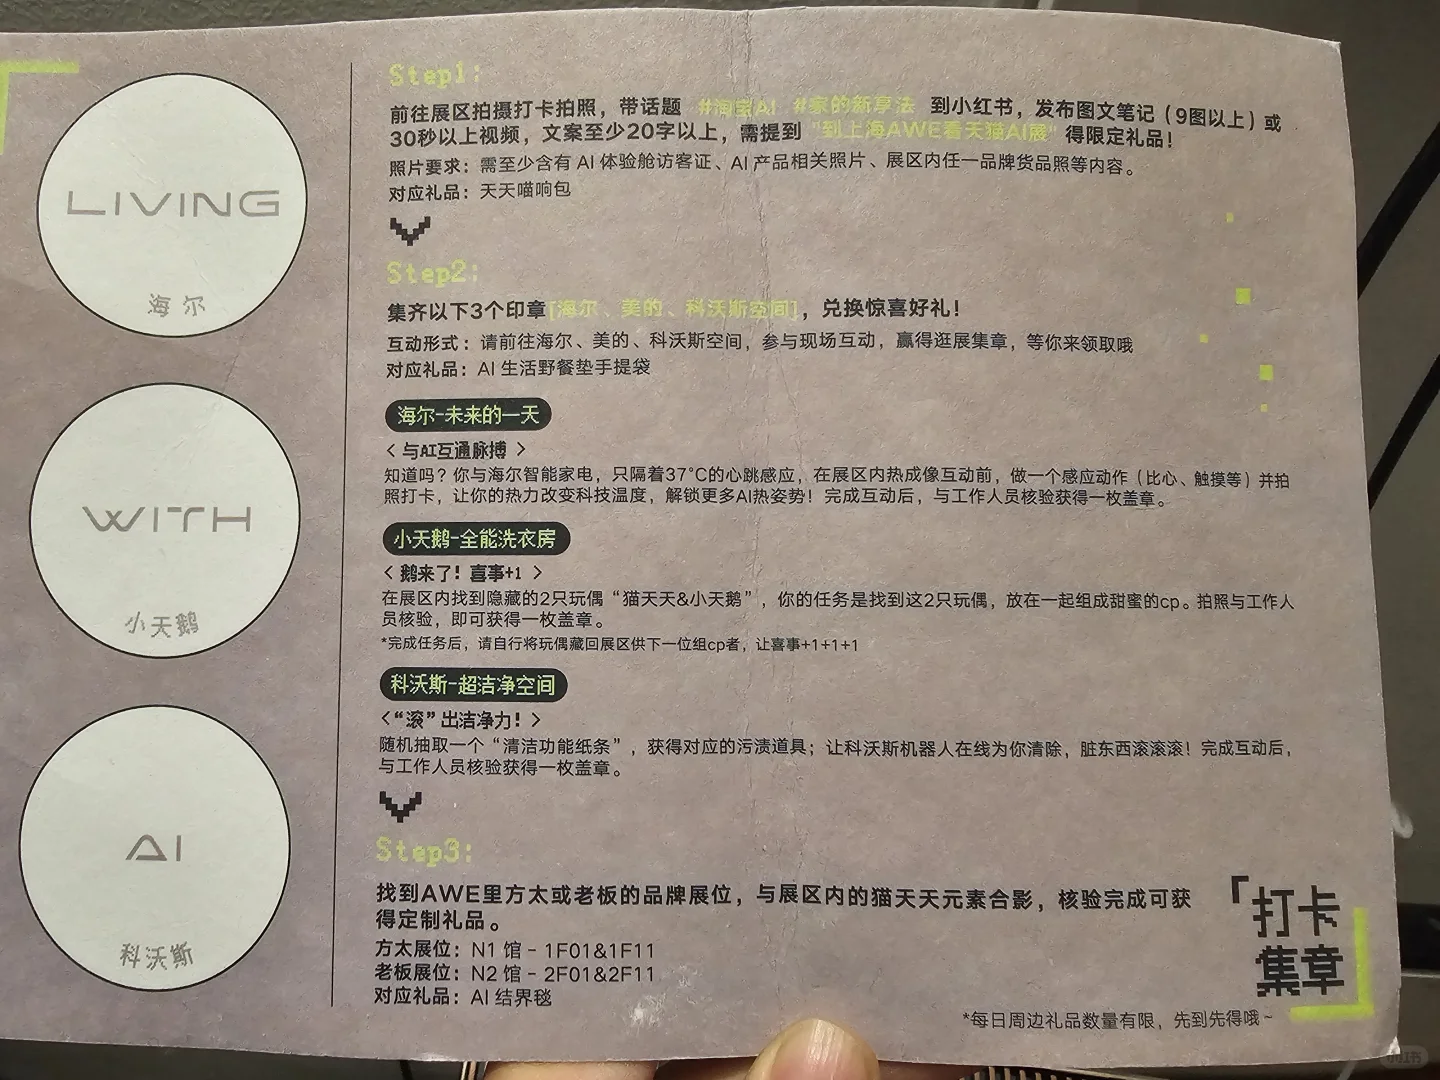 LIVING
海尔
WITH
小天鹅
AI
科沃斯
Step1:
前往展区拍摄打卡拍照，带话题 #淘宝AI #家的新享法 到小红书，发布图文笔记（9图以上）或
30秒以上视频，文案至少20字以上，需提到 "到上海AWE看天猫AI展" 得限定礼品！
照片要求：需至少含有 AI 体验舱访客证、AI 产品相关照片、展区内任一品牌货品照等内容。
对应礼品：天天喵响包
Step2:
集齐以下3个印章[海尔、美的、科沃斯空间]，兑换惊喜好礼！
互动形式：请前往海尔、美的、科沃斯空间，参与现场互动，赢得逛展集章，等你来领取哦
对应礼品：AI 生活野餐垫手提袋
海尔-未来的一天
〈 与AI互通脉搏 〉
知道吗？你与海尔智能家电，只隔着37°C的心跳感应，在展区内热成像互动前，做一个感应动作（比心、触摸等）并拍
照打卡，让你的热力改变科技温度，解锁更多AI热姿势！完成互动后，与工作人员核验获得一枚盖章。
小天鹅-全能洗衣房
〈 鹅来了！喜事+1 〉
在展区内找到隐藏的2只玩偶“猫天天&小天鹅”，你的任务是找到这2只玩偶，放在一起组成甜蜜的cp。拍照与工作人
员核验，即可获得一枚盖章。
*完成任务后，请自行将玩偶藏回展区供下一位组cp者，让喜事+1+1+1
科沃斯-超洁净空间
〈“滚”出洁净力！〉
随机抽取一个“清洁功能纸条”，获得对应的污渍道具；让科沃斯机器人在线为你清除，脏东西滚滚滚！完成互动后，
与工作人员核验获得一枚盖章。
Step3:
找到AWE里方太或老板的品牌展位，与展区内的猫天天元素合影，核验完成可获
得定制礼品。
方太展位：N1 馆 - 1F01&1F11
老板展位：N2 馆 - 2F01&2F11
对应礼品：AI 结界毯
「打卡
集章
*每日周边礼品数量有限，先到先得哦~